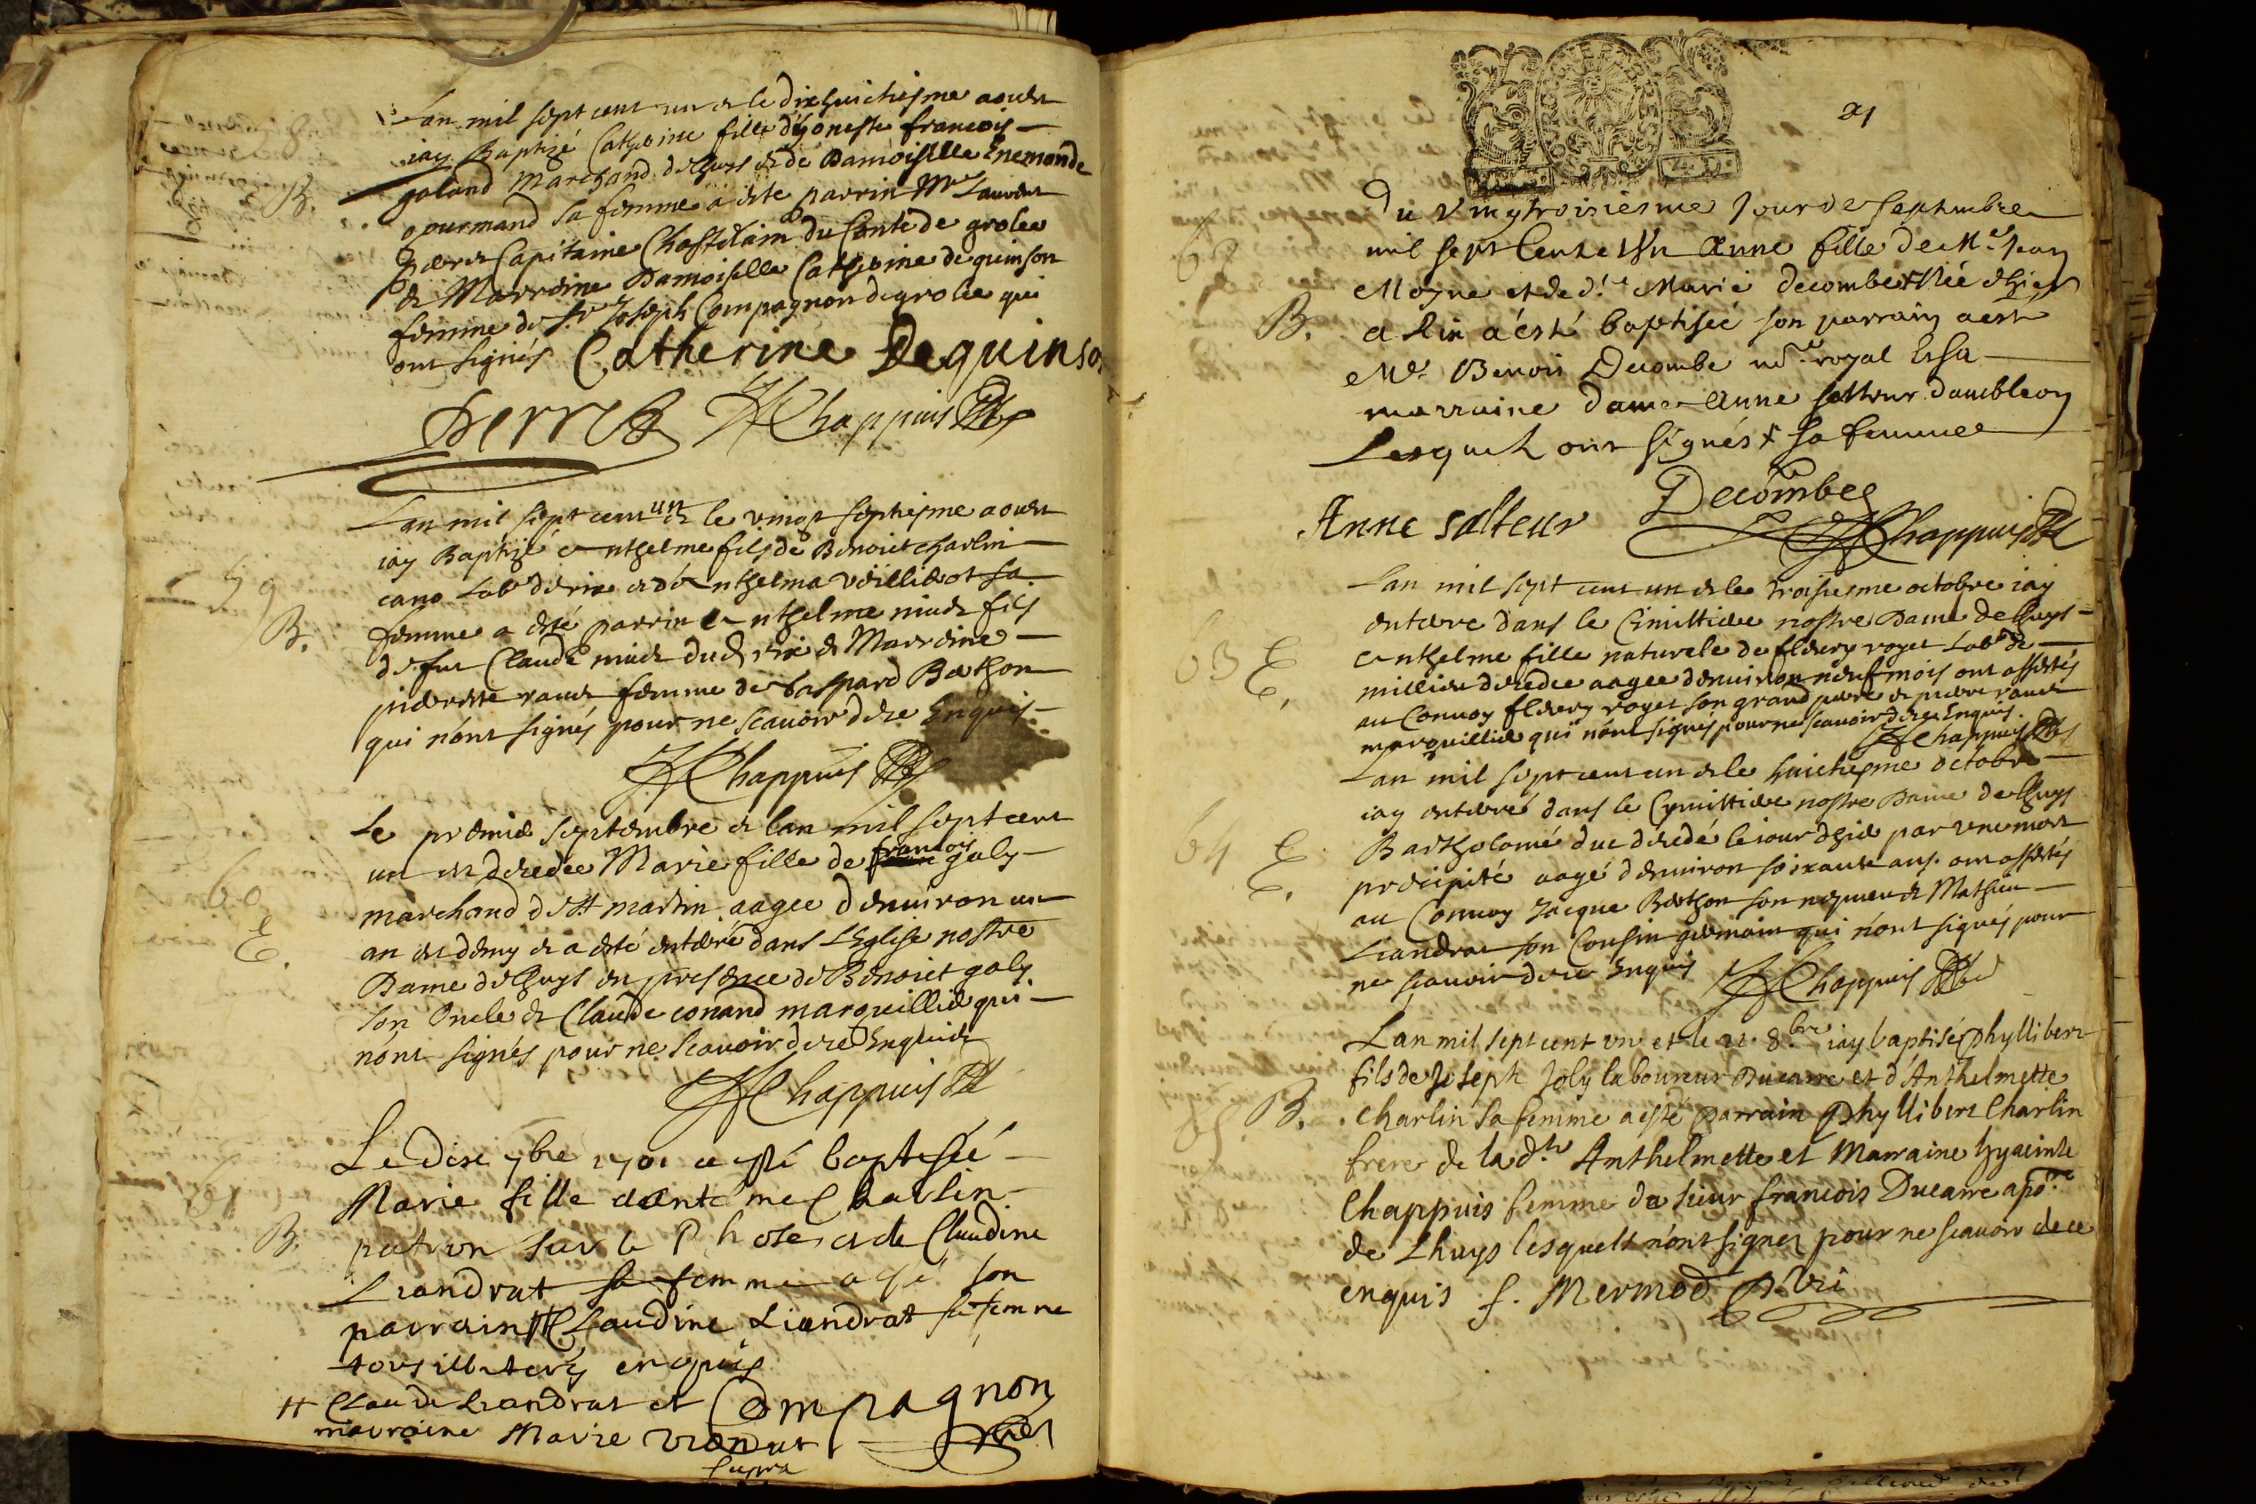 Lan mil sept cent un et le dixhuictiesme aoust
iay Baptizé Catherine fille d'honeste francois
galand marchand de Lhuys et de Damoiselle Enemonde
B.
gourmand sa femme a esté parrin Mre Laurent
Capitaine Chastelain du Conte de grolee
et Marreine Damoiselle Catherine de quinson
femme de Sr Joseph Compagnon de grolee qui
ont signés Catherine Dequinson
Chappuis
Lan mil sept cent un et le vingt septiesme aoust
iay Baptizé Anthelme fils de Benoict charlin
59
cano Labr de rix et d'Anthelma veillerot sa
B.
femme a esté parrin Anthelme miuet fils
de fut Claude miuet dud rix et Marreine
pierrette femme de Gaspard Berthon
qui n'ont signés pour ne scauoir de ce Enquis
Chappuis
Le premier septembre et lan mil sept cent
un est decedee Marie fille de francois galy
60
marchand de St martin aagee d'enuiron un
E.
an et demy et a esté enterré dans L'Eglise nostre
Dame de Lhuys en presence de Benoict galy
son Oncle et Claude conand marguillier qui
n'ont signés pour ne scauoir de ce Enquis
Chappuis
Le dix 7bre 1701 a esté baptisée
61
Marie fille dantelme Charlin
B.
patron sur le Rhosne et de Claudine
Liandrat sa femme a esté son
parrain # Claudine Liandrat sa femme
tous illiterés enquis
# Claude Liandrat et Compagnon
marraine Marie
supra
21
Du vingtroisiesme Jour de Septembre
62
mil sept Cent Un Anne fille de Mr Jean
Moyne et de de Marie decombe Née
B.
a Rix a esté baptisée son parrain a esté
Mr Benoit Decombe nore royal Et sa
marraine dame Anne salteur
Lesquels ont signés + sa femme
Anne salteur Decombes
Chappuis
Lan mil sept cent un et le troisiesme octobre iay
enterre dans le Cimittiere nostre Dame de Lhuys
63 E.
Anthelme fille naturele de fleury royet Labr de
millieu decedee aagee d'enuiron neuf mois ont assistés
au Conuoy fleury royet son grand pere et pierre
marguillier qui n'ont signés pour ne scauoir de ce Enquis
Chappuis
Lan mil sept cent un et le huictiesme octobre
iay enterré dans le Cymittiere nostre Dame de Lhuys
64 E.
Bartholomé duc decedé le iour d'hier par une mort
precipité aagé d'enuiron soixante ans. ont assistés
au Conuoy Jacque Berthon son nepueu et Mathieu
Liandrat son Cousin germain qui n'ont signés pour
ne scauoir de ce Enquis Chappuis
Lan mil sept cent un et le 22 8bre iay baptisé Phyllibert
fils de Joseph Joly laboureur Ducarre et d'Anthelmette
65 B.
Charlin sa femme a esté parrain Phyllibert Charlin
frere de la dte Anthelmette et Marraine hyacinte
Chappuis femme du sieur francois Ducarre apore
de Lhuys lesquels n'ont signez pour ne scauoir de ce
enquis f. Mermod